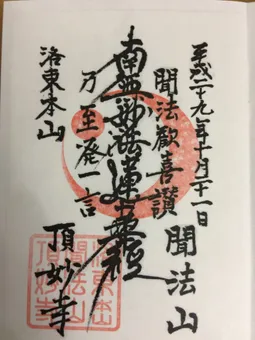 平成二十九年十月二十一日
聞法山
聞法歓喜讃
南無妙法蓮華経
乃至発一言
洛東本山
頂妙寺
洛東本山
聞法山
頂妙寺